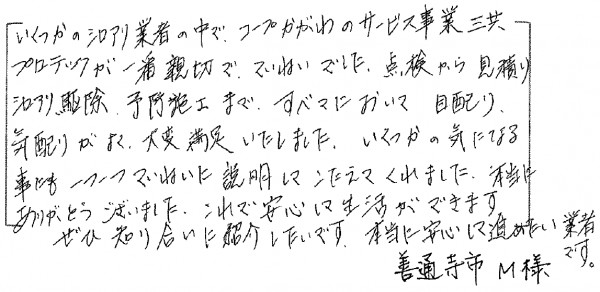 いくつかのシロアリ業者の中で、コープかがわのサービス事業 三共
プロテックが一番親切で、ていねいでした。点検から見積り
シロアリ駆除、予防施工まで、すべてにおいて 目配り、
気配りがよく、大変満足いたしました。いくつかの気になる
事にも一つ一つていねいに説明してこたえてくれました。本当に
ありがとうございました。これで安心して生活ができます
ぜひ知り合いに紹介したいです。本当に安心して進めたい業者
です。
善通寺市 M様